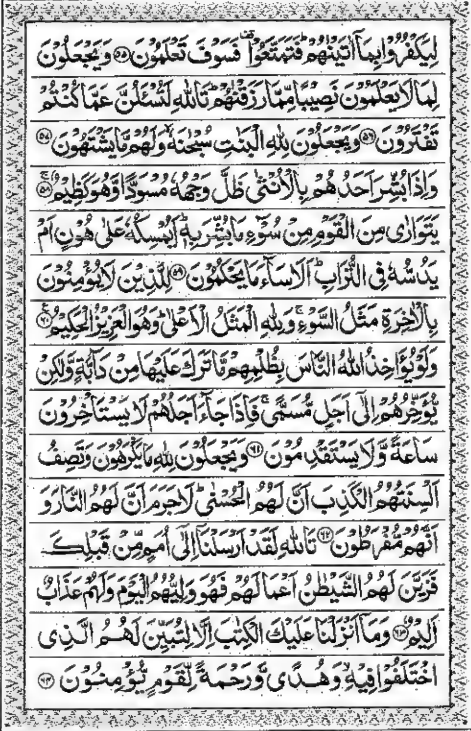 لِيَكْفُرُوْا بِمَاۤ اٰتَيْنٰهُمْ ؕ فَتَمَتَّعُوْا ۫ فَسَوْفَ تَعْلَمُوْنَ ۝۵۵ وَيَجْعَلُوْنَ
لِمَا لَا يَعْلَمُوْنَ نَصِيْبًا مِّمَّا رَزَقْنٰهُمْ ؕ تَاللّٰهِ لَتُسْـَٔلُنَّ عَمَّا كُنْتُمْ
تَفْتَرُوْنَ ۝۵۶ وَيَجْعَلُوْنَ لِلّٰهِ الْبَنٰتِ سُبْحٰنَهٗ ۙ وَلَهُمْ مَّا يَشْتَهُوْنَ ۝۵۷
وَاِذَا بُشِّرَ اَحَدُهُمْ بِالْاُنْثٰى ظَلَّ وَجْهُهٗ مُسْوَدًّا وَّهُوَ كَظِيْمٌ ۝۵۸ۚ
يَتَوَارٰى مِنَ الْقَوْمِ مِنْ سُوْٓءِ مَا بُشِّرَ بِهٖ ؕ اَيُمْسِكُهٗ عَلٰى هُوْنٍ اَمْ
يَدُسُّهٗ فِى التُّرَابِ ؕ اَلَا سَآءَ مَا يَحْكُمُوْنَ ۝۵۹ لِلَّذِيْنَ لَا يُؤْمِنُوْنَ
بِالْاٰخِرَةِ مَثَلُ السَّوْءِ ۚ وَلِلّٰهِ الْمَثَلُ الْاَعْلٰى ؕ وَهُوَ الْعَزِيْزُ الْحَكِيْمُ ۝۶۰
وَلَوْ يُؤَاخِذُ اللّٰهُ النَّاسَ بِظُلْمِهِمْ مَّا تَرَكَ عَلَيْهَا مِنْ دَآبَّةٍ وَّلٰكِنْ
يُّؤَخِّرُهُمْ اِلٰۤى اَجَلٍ مُّسَمًّى ۚ فَاِذَا جَآءَ اَجَلُهُمْ لَا يَسْتَاْخِرُوْنَ
سَاعَةً وَّلَا يَسْتَقْدِمُوْنَ ۝۶۱ وَيَجْعَلُوْنَ لِلّٰهِ مَا يَكْرَهُوْنَ وَتَصِفُ
اَلْسِنَتُهُمُ الْكَذِبَ اَنَّ لَهُمُ الْحُسْنٰى ؕ لَا جَرَمَ اَنَّ لَهُمُ النَّارَ وَ
اَنَّهُمْ مُّفْرَطُوْنَ ۝۶۲ تَاللّٰهِ لَقَدْ اَرْسَلْنَاۤ اِلٰۤى اُمَمٍ مِّنْ قَبْلِكَ
فَزَيَّنَ لَهُمُ الشَّيْطٰنُ اَعْمَالَهُمْ فَهُوَ وَلِيُّهُمُ الْيَوْمَ وَلَهُمْ عَذَابٌ
اَلِيْمٌ ۝۶۳ وَمَاۤ اَنْزَلْنَا عَلَيْكَ الْكِتٰبَ اِلَّا لِتُبَيِّنَ لَهُمُ الَّذِى
اخْتَلَفُوْا فِيْهِ ۙ وَهُدًى وَّرَحْمَةً لِّقَوْمٍ يُّؤْمِنُوْنَ ۝۶۴